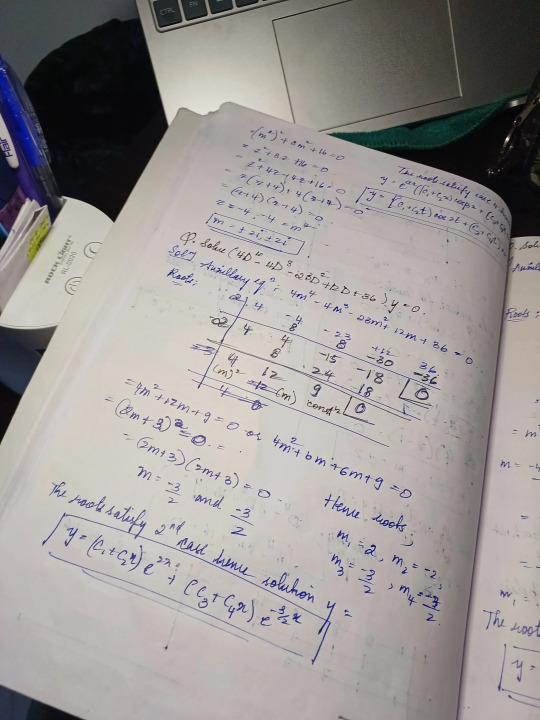 CTRL
FN
(m²)² + 8m² + 16 = 0
= z² + 8z + 16 = 0
= z² + 4z + 4z + 16 = 0
= z(z+4) + 4(z+4) = 0
= (z+4)(z+4) = 0
z = -4, -4 = m²
m = ±2i, ±2i
The roots satisfy case
Q. Solve (4D⁴ - 4D³ - 23D² + 12D + 36) y = 0.
Solⁿ Auxillary eqⁿ = 4m⁴ - 4m³ - 23m² + 12m + 36 = 0
Roots:
2 4 -4 -23 +12 36
8 8 -30 -36
2 4 4 -15 -18 0
8 24 18
4 12 9 0
(m)² (m) constⁿ
= 4m² + 12m + 9 = 0 or 4m² + 6m + 6m + 9 = 0
= (2m+3)² = 0.
= (2m+3)(2m+3) = 0.
m = -3/2 and -3/2
Hence roots,
m₁ = 2, m₂ = -2,
m₃ = -3/2, m₄ = -3/2.
The roots satisfy 2nd case hence solution y =
y = (C₁+C₂x) e²ˣ + (C₃+C₄x) e^-3/2 x
Roots:
The root
y =